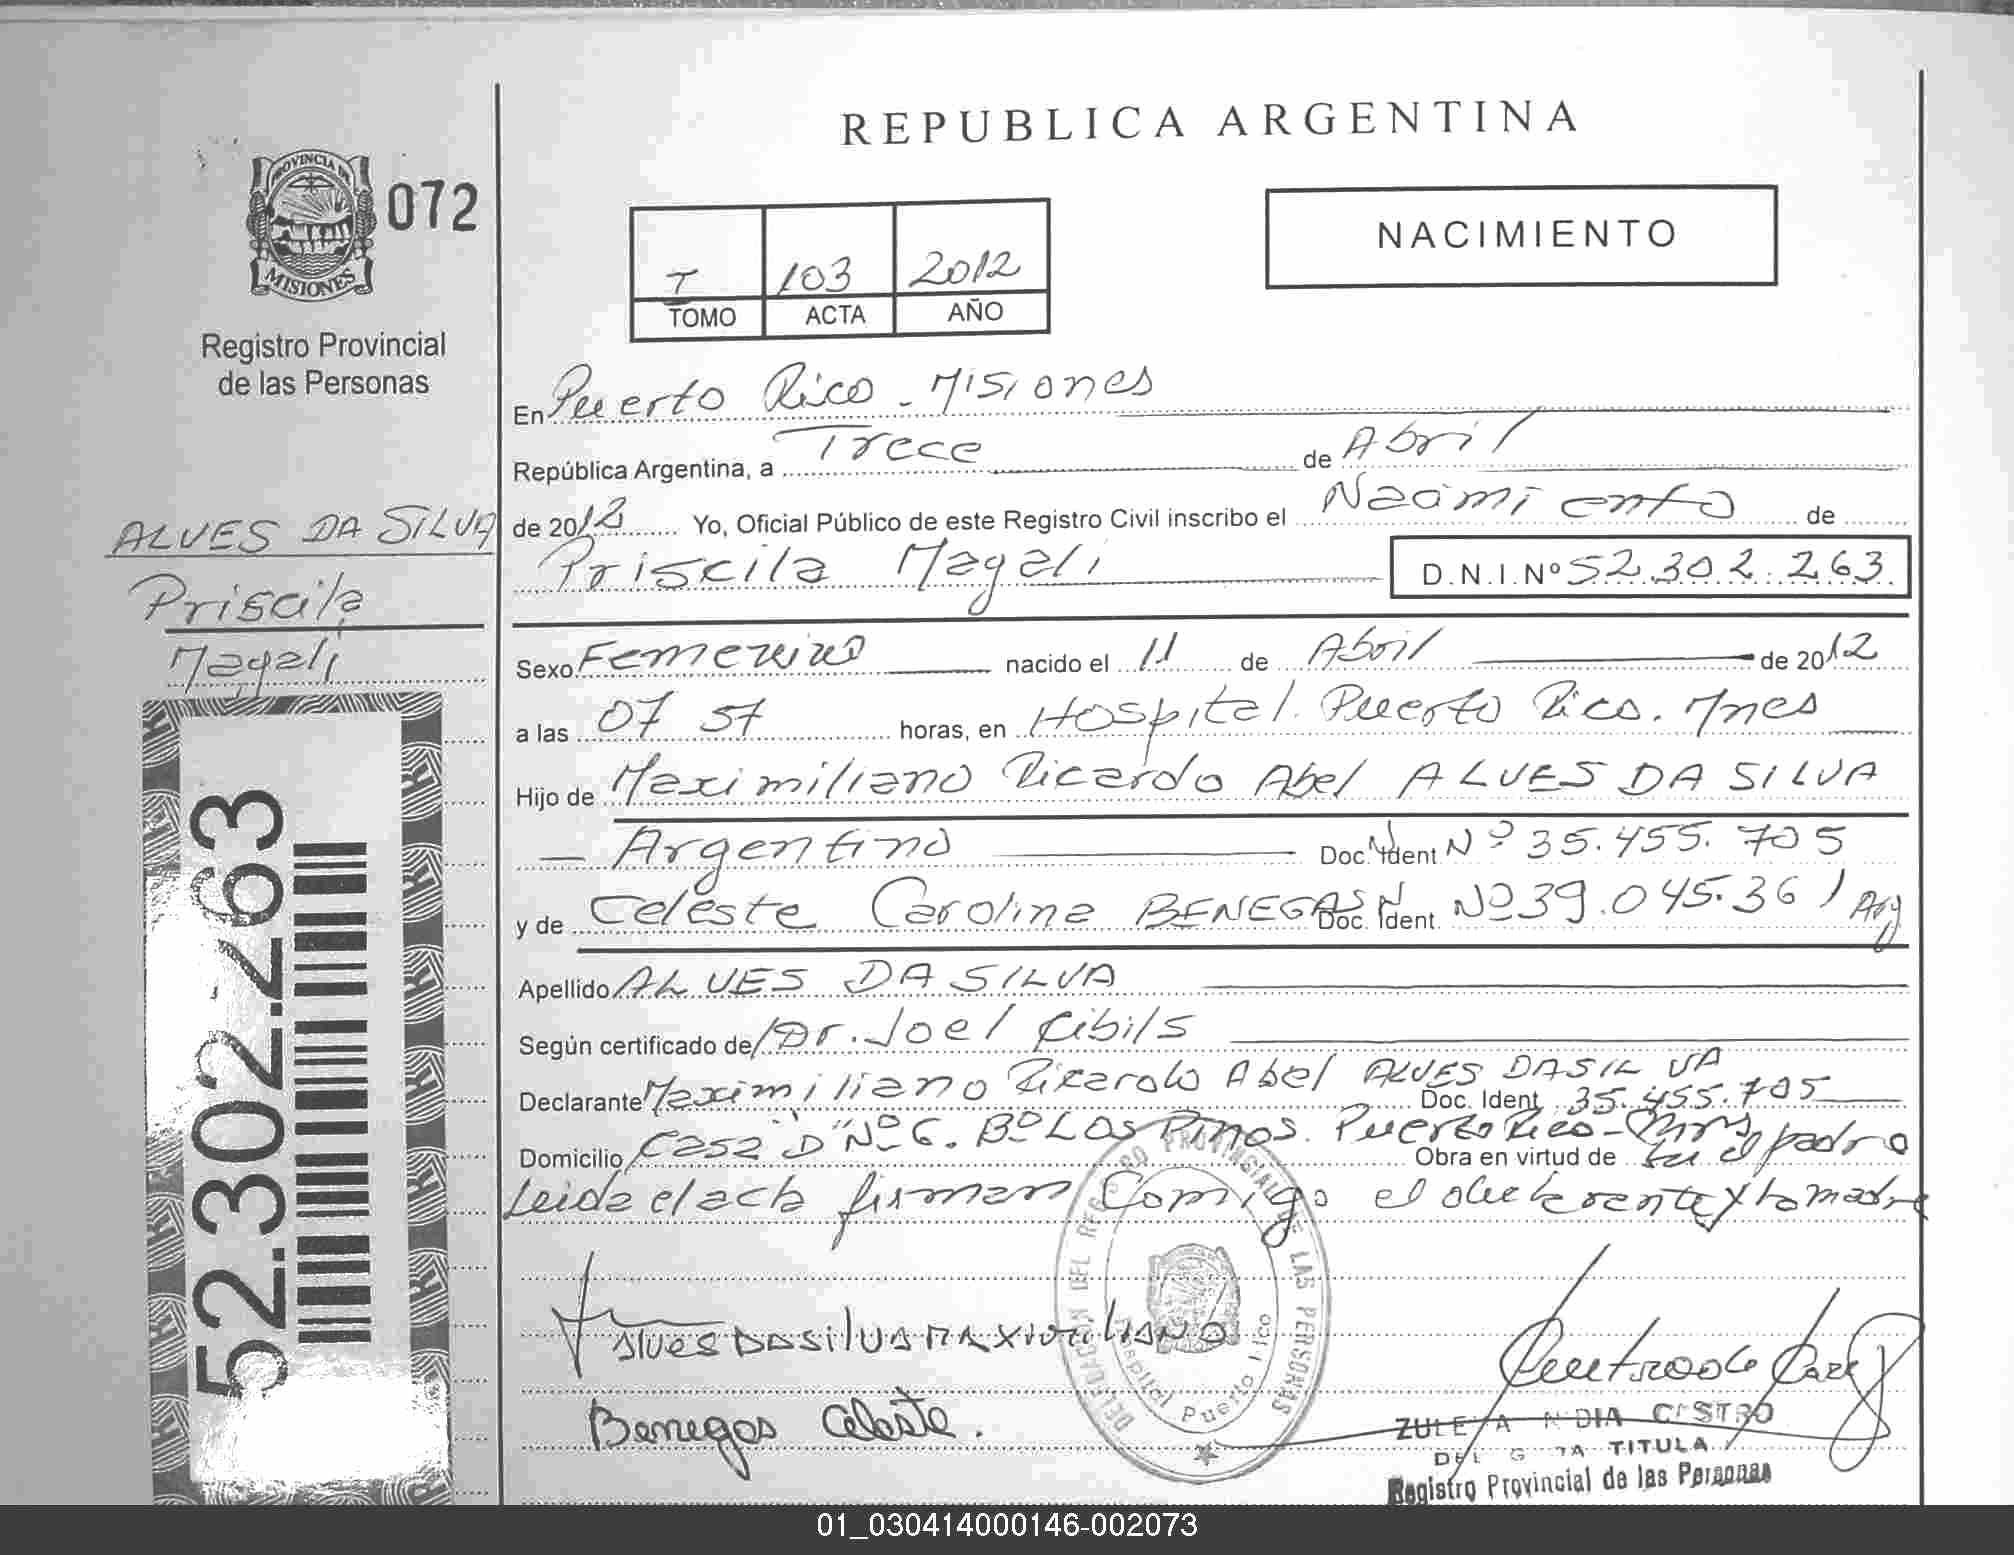 REPUBLICA ARGENTINA
PROVINCIA DE
MISIONES
072
Registro Provincial
de las Personas
NACIMIENTO
T 103 2012
TOMO ACTA AÑO
En Puerto Rico - Misiones
República Argentina, a Trece de Abril
de 2012 Yo, Oficial Público de este Registro Civil inscribo el Nacimiento de
Priscila Magali D.N.I. Nº 52.302.263
ALVES DA SILVA
Priscila
Magali
Sexo Femenino nacido el 11 de Abril de 2012
a las 07 57 horas, en Hospital. Puerto Rico. Mnes
Hijo de Maximiliano Ricardo Abel ALVES DA SILVA
Argentino Doc. Ident Nº 35.455.705
y de Celeste Carolina BENEGAS Doc. Ident. Nº 39.045.361 Arg
Apellido ALVES DA SILVA
Según certificado de Dr. Joel Cibils
Declarante Maximiliano Ricardo Abel ALVES DA SILVA
Doc. Ident. 35.455.705
Domicilio Casa "D" Nº 6. Bº Los Pinos. Puerto Rico - Mns
Obra en virtud de ser el padre
Leida el acta firman Comigo el declarante y la madre
Alves Da Silva MAXiMiliANO
Benegas Celeste.
DELEGACION DEL REGISTRO PROVINCIAL DE LAS PERSONAS
Hospital Puerto Rico
CASTRO
TITULA
Registro Provincial de las Personas
52.302.263
01_030414000146-002073